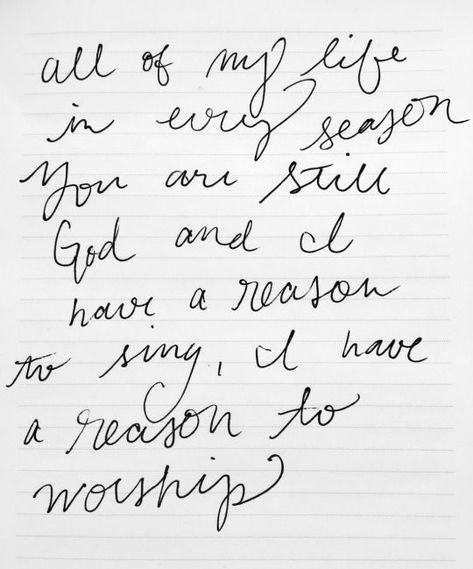 all of my life
in every season
You are still
God and I
have a reason
to sing, I have
a reason to
worship